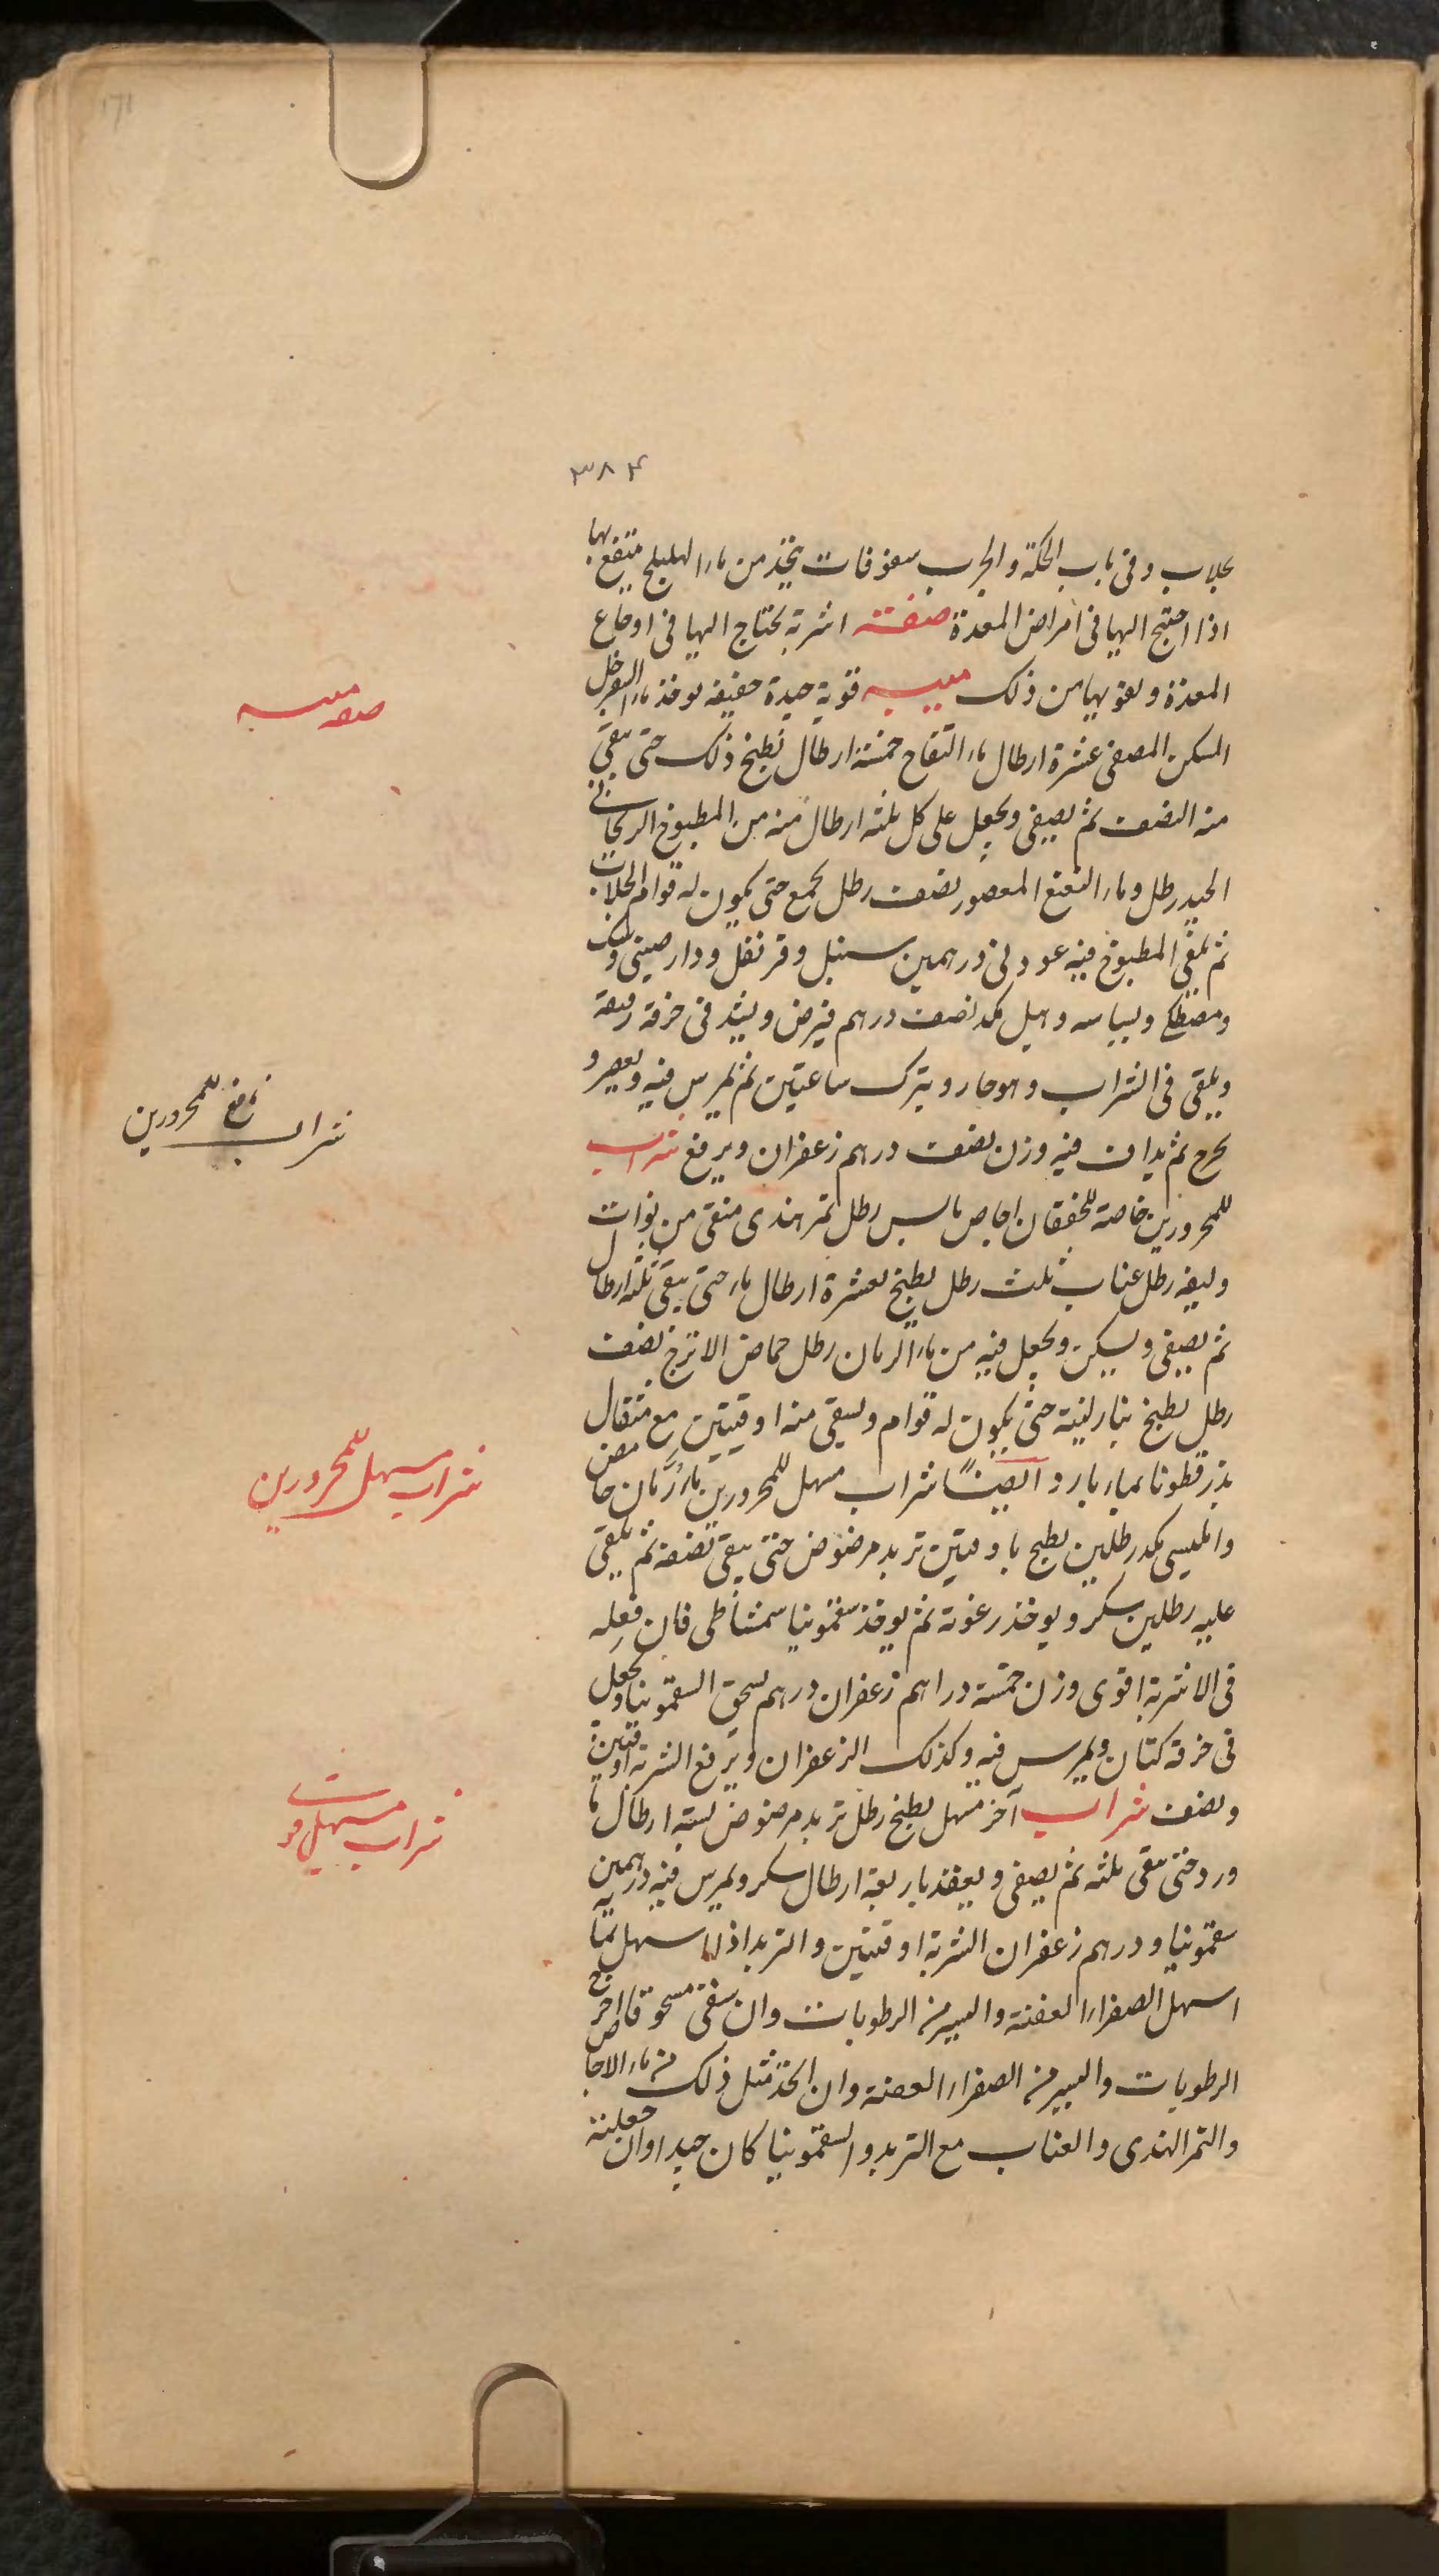 171
۳۸۴
بجلاب وفى باب الحكة والجرب سفوفات يتخذ من ماء الهليلج ينتفع بها
اذا احتيج اليها فى امراض المعدة صفة اشربة يحتاج اليها فى اوجاع
المعدة وتقويها من ذلك ميبه قوية جيدة خفيفة يوخذ ماء السفرجل
المسكن المصفى عشرة ارطال ماء التفاح خمسة ارطال يطبخ ذلك حتى يبقى
منه النصف ثم يصفى ويجعل على كل ثلثة ارطال منه من المطبوخ الريحانى
الجيد رطل وماء النعنع المعصور نصف رطل يجمع حتى يكون له قوام الجلاب
ثم يلقى المطبوخ فيه عود نى درهمين سنبل وقرنفل ودارصينى وسك
ومصطكى وبسباسه وهيل بكد نصف درهم فيرض ويشد فى خرقة رقيقة
ويلقى فى الشراب وهو حار ويترك ساعتين ثم يمرس فيه ويعصر و
يخرج ثم يداف فيه وزن نصف درهم زعفران ويرفع شراب
للمحرورين خاصة للخفقان اجاص يابس رطل تمر هندى منقى من نواته
وليفه رطل عناب ثلث رطل يطبخ بعشرة ارطال ماء حتى يبقى ثلثة ارطال
ثم يصفى ويسكن ويجعل فيه من ماء الرمان رطل حماض الاترج نصف
رطل يطبخ بنار لينة حتى يكون له قوام ويسقى منه اوقيتين مع مثقال
بزرقطونا بماء بارد ايضًا شراب مسهل للمحرورين ماء رمان حامض
وامليسى بكد رطلين يطبخ باوقيتين تربد مرضوض حتى يبقى نصفه ثم يلقى
عليه رطلين سكر ويوخذ رغوته ثم يوخذ سقمونيا سمشاطى فان فعله
فى الاشربة اقوى وزن خمسة دراهم زعفران درهم يسحق السقمونيا ويجعل
فى خرقة كتان ويمرس فيه وكذلك الزعفران ويرفع الشربة اوقيتين
ونصف شراب آخر مسهل يطبخ رطل تربد مرضوض بستة ارطال ماء
ورد حتى يبقى ثلثه ثم يصفى ويعقد باربعة ارطال سكر ويمرس فيه درهمين
سقمونيا ودرهم زعفران الشربة اوقيتين والتربد اذا اسهل بمائه
اسهل الصفراء العفنة واليسير من الرطوبات وان سقى مسحوقا اخرج
الرطوبات واليسير من الصفراء العفنة وان اتخذ مثل ذلك من ماء الاجاص
والتمر الهندى والعناب مع التربد والسقمونيا كان جيدا وان جعلته
صفه ميبه
شراب نافع للمحرورين
شراب مسهل للمحرورين
شراب مسهل